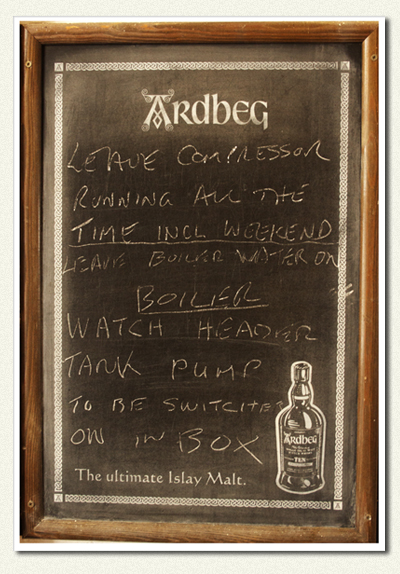 ARDBEG
LEAVE COMPRESSOR
RUNNING ALL THE
TIME INCL WEEKEND
LEAVE BOILER WATER ON
BOILER
WATCH HEADER
TANK PUMP
TO BE SWITCHED
ON IN BOX
ARDBEG
TEN
The ultimate Islay Malt.